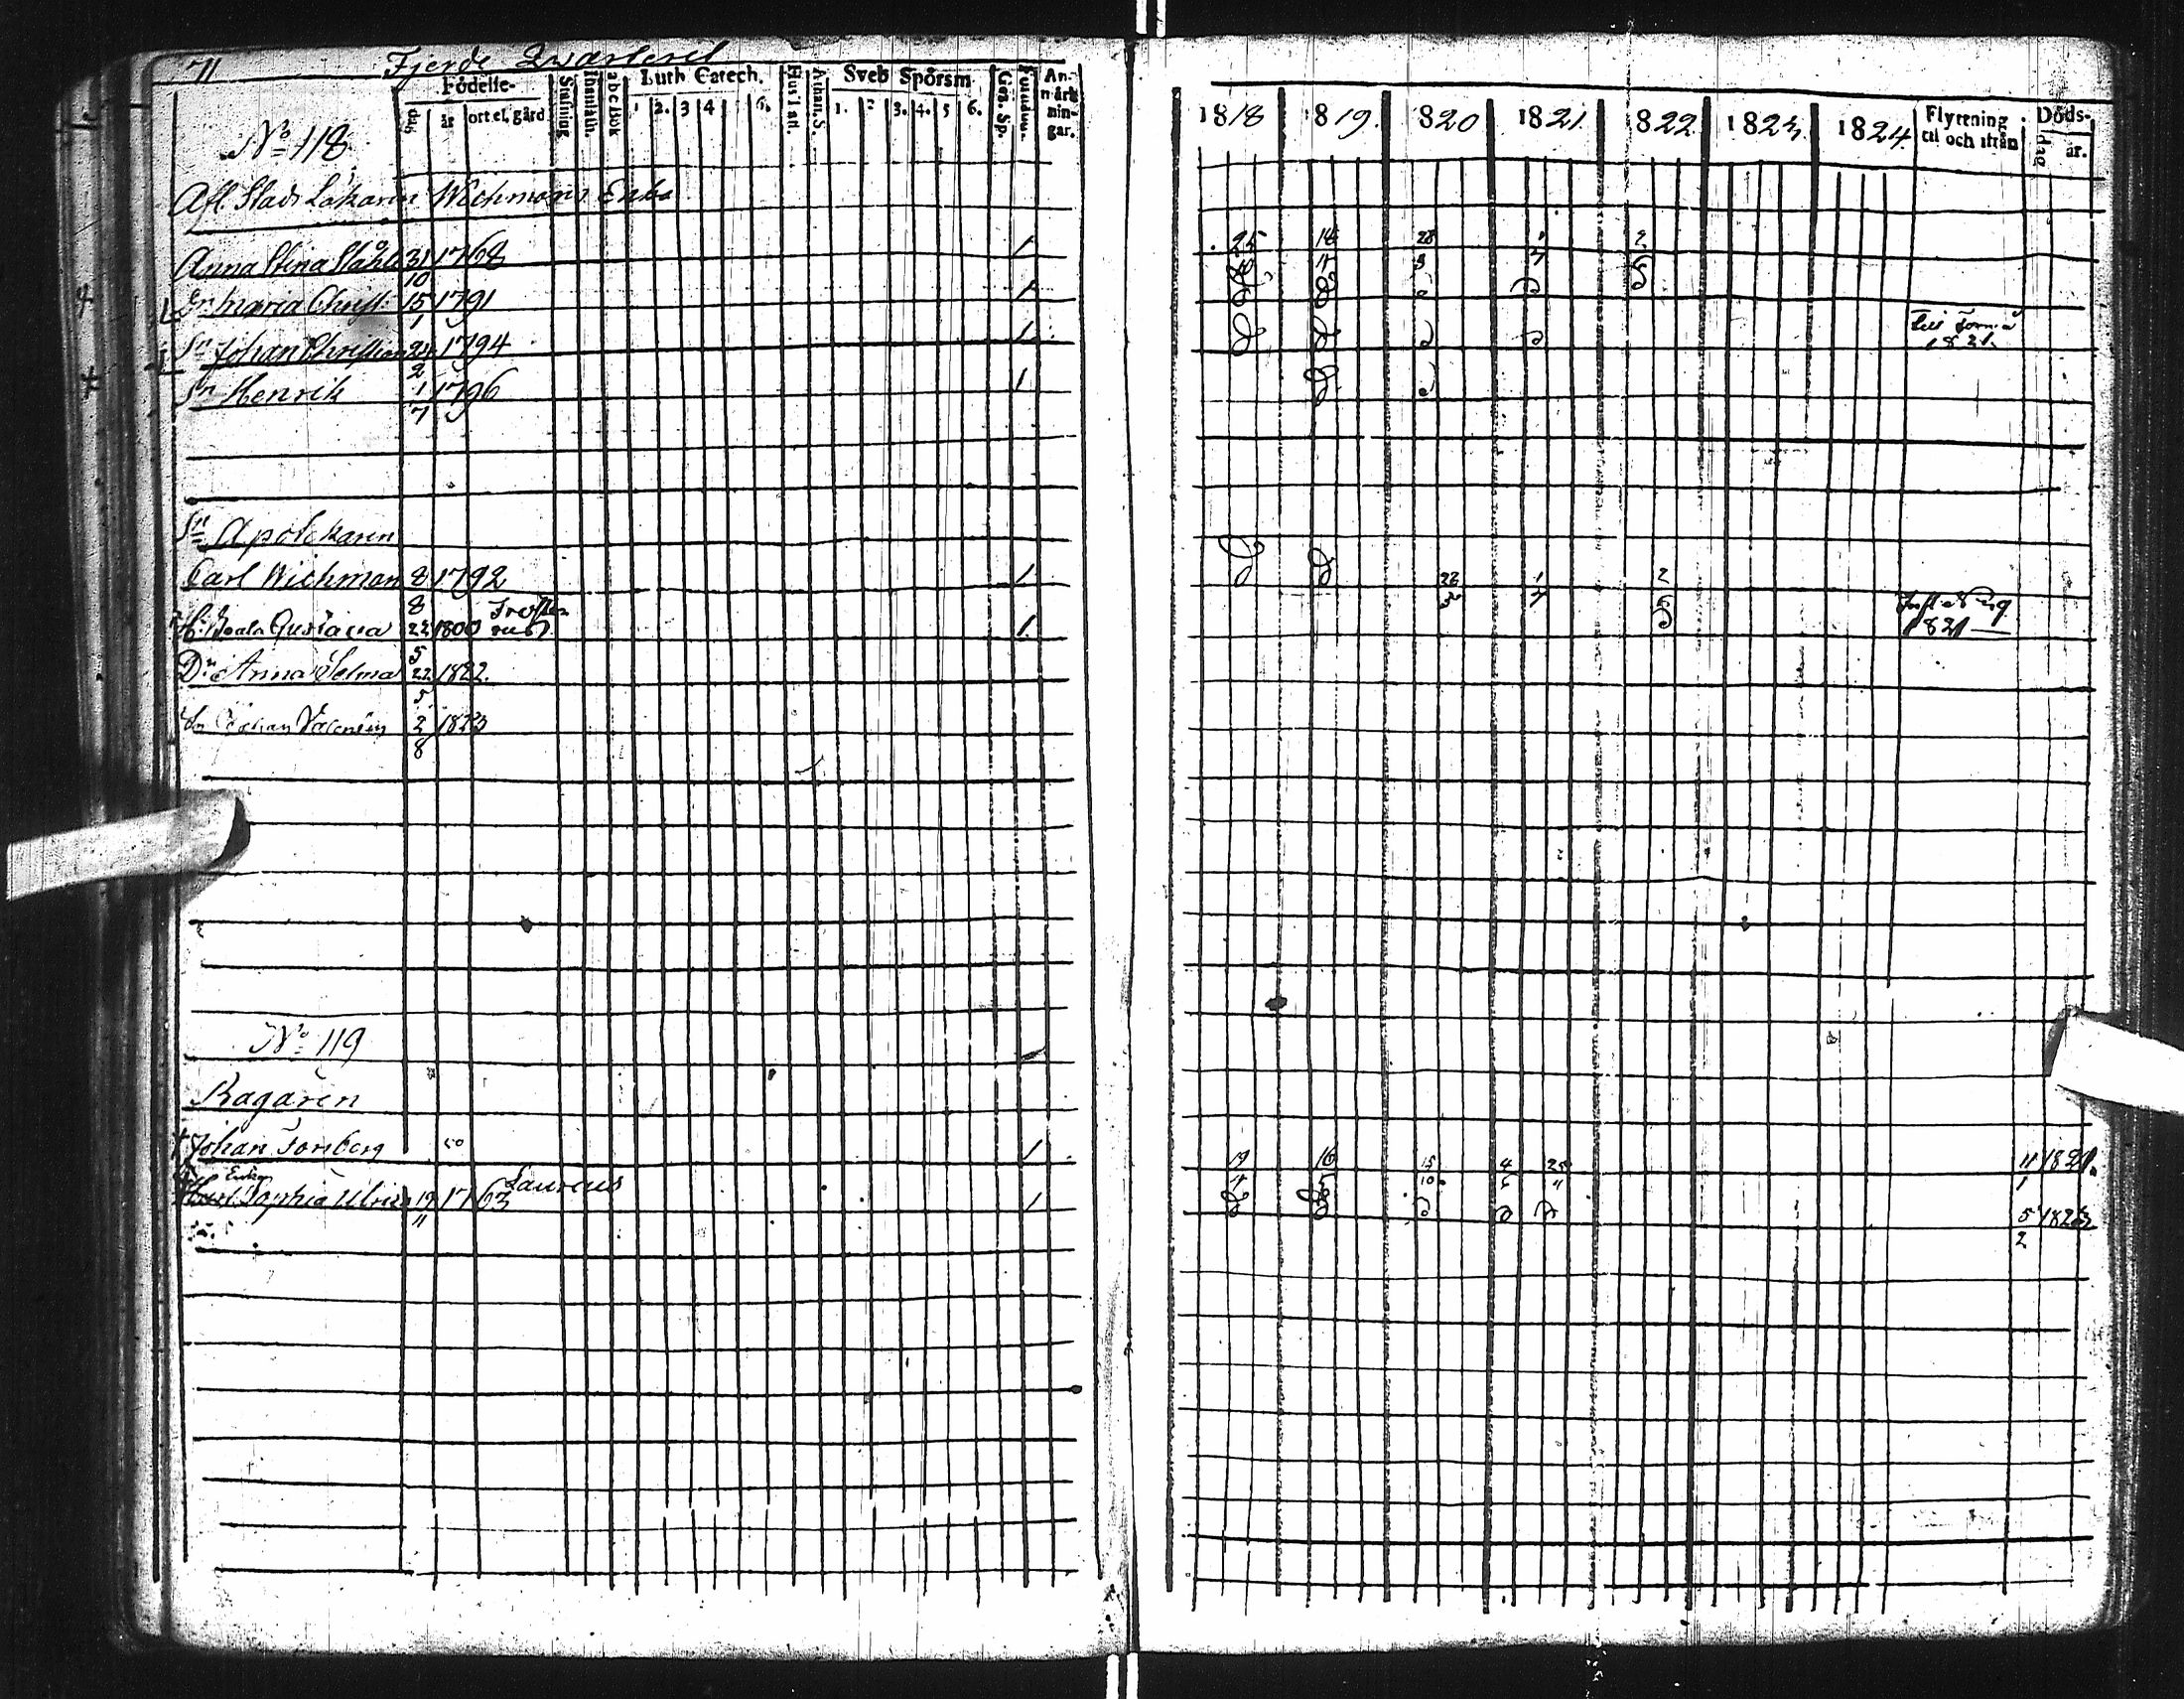 71 Fjerde Qvarteret
Födelse- dag år ort el. gård Stafning Innanläsn. abc bok Luth Catech. 1 2. 3 4 6. Hust. afl. Athan. S. Sveb Spörsm 1. 2 3. 4. 5 6. Gez. Sp. An-märk-nin-gar. 1818 1819. 1820 1821. 1822 1823. 1824. Flyttning til och ifrån Döds- dag år.
No 118
Afl. Stads Läkaren Wichmans Enka
Anna Stina Ståhle 31 1768 1 25 18 28 1 2
10 4 5
Dr Maria Christ. 15 1791 1
1
Sn Johan Christian 24 1794 1 till 1821.
2
Sn Henrik 1 1796 1
7
Sn Apotekaren
Carl Wichman 8 1792 1 28 1 2
8 4 5
H. Beata Gustava 22 1800 1 1821
5
Dr Anna Selma 22 1822.
5
Sn Johan 2 1823
8
No 119
Ragaren
† Johan Forsberg 50 1 19 16 15 4 25 11 1821.
Enka Lauræus 4 5 10 1
Hust. Sophia Ulrica 19 1763 1 5 1823
11 2